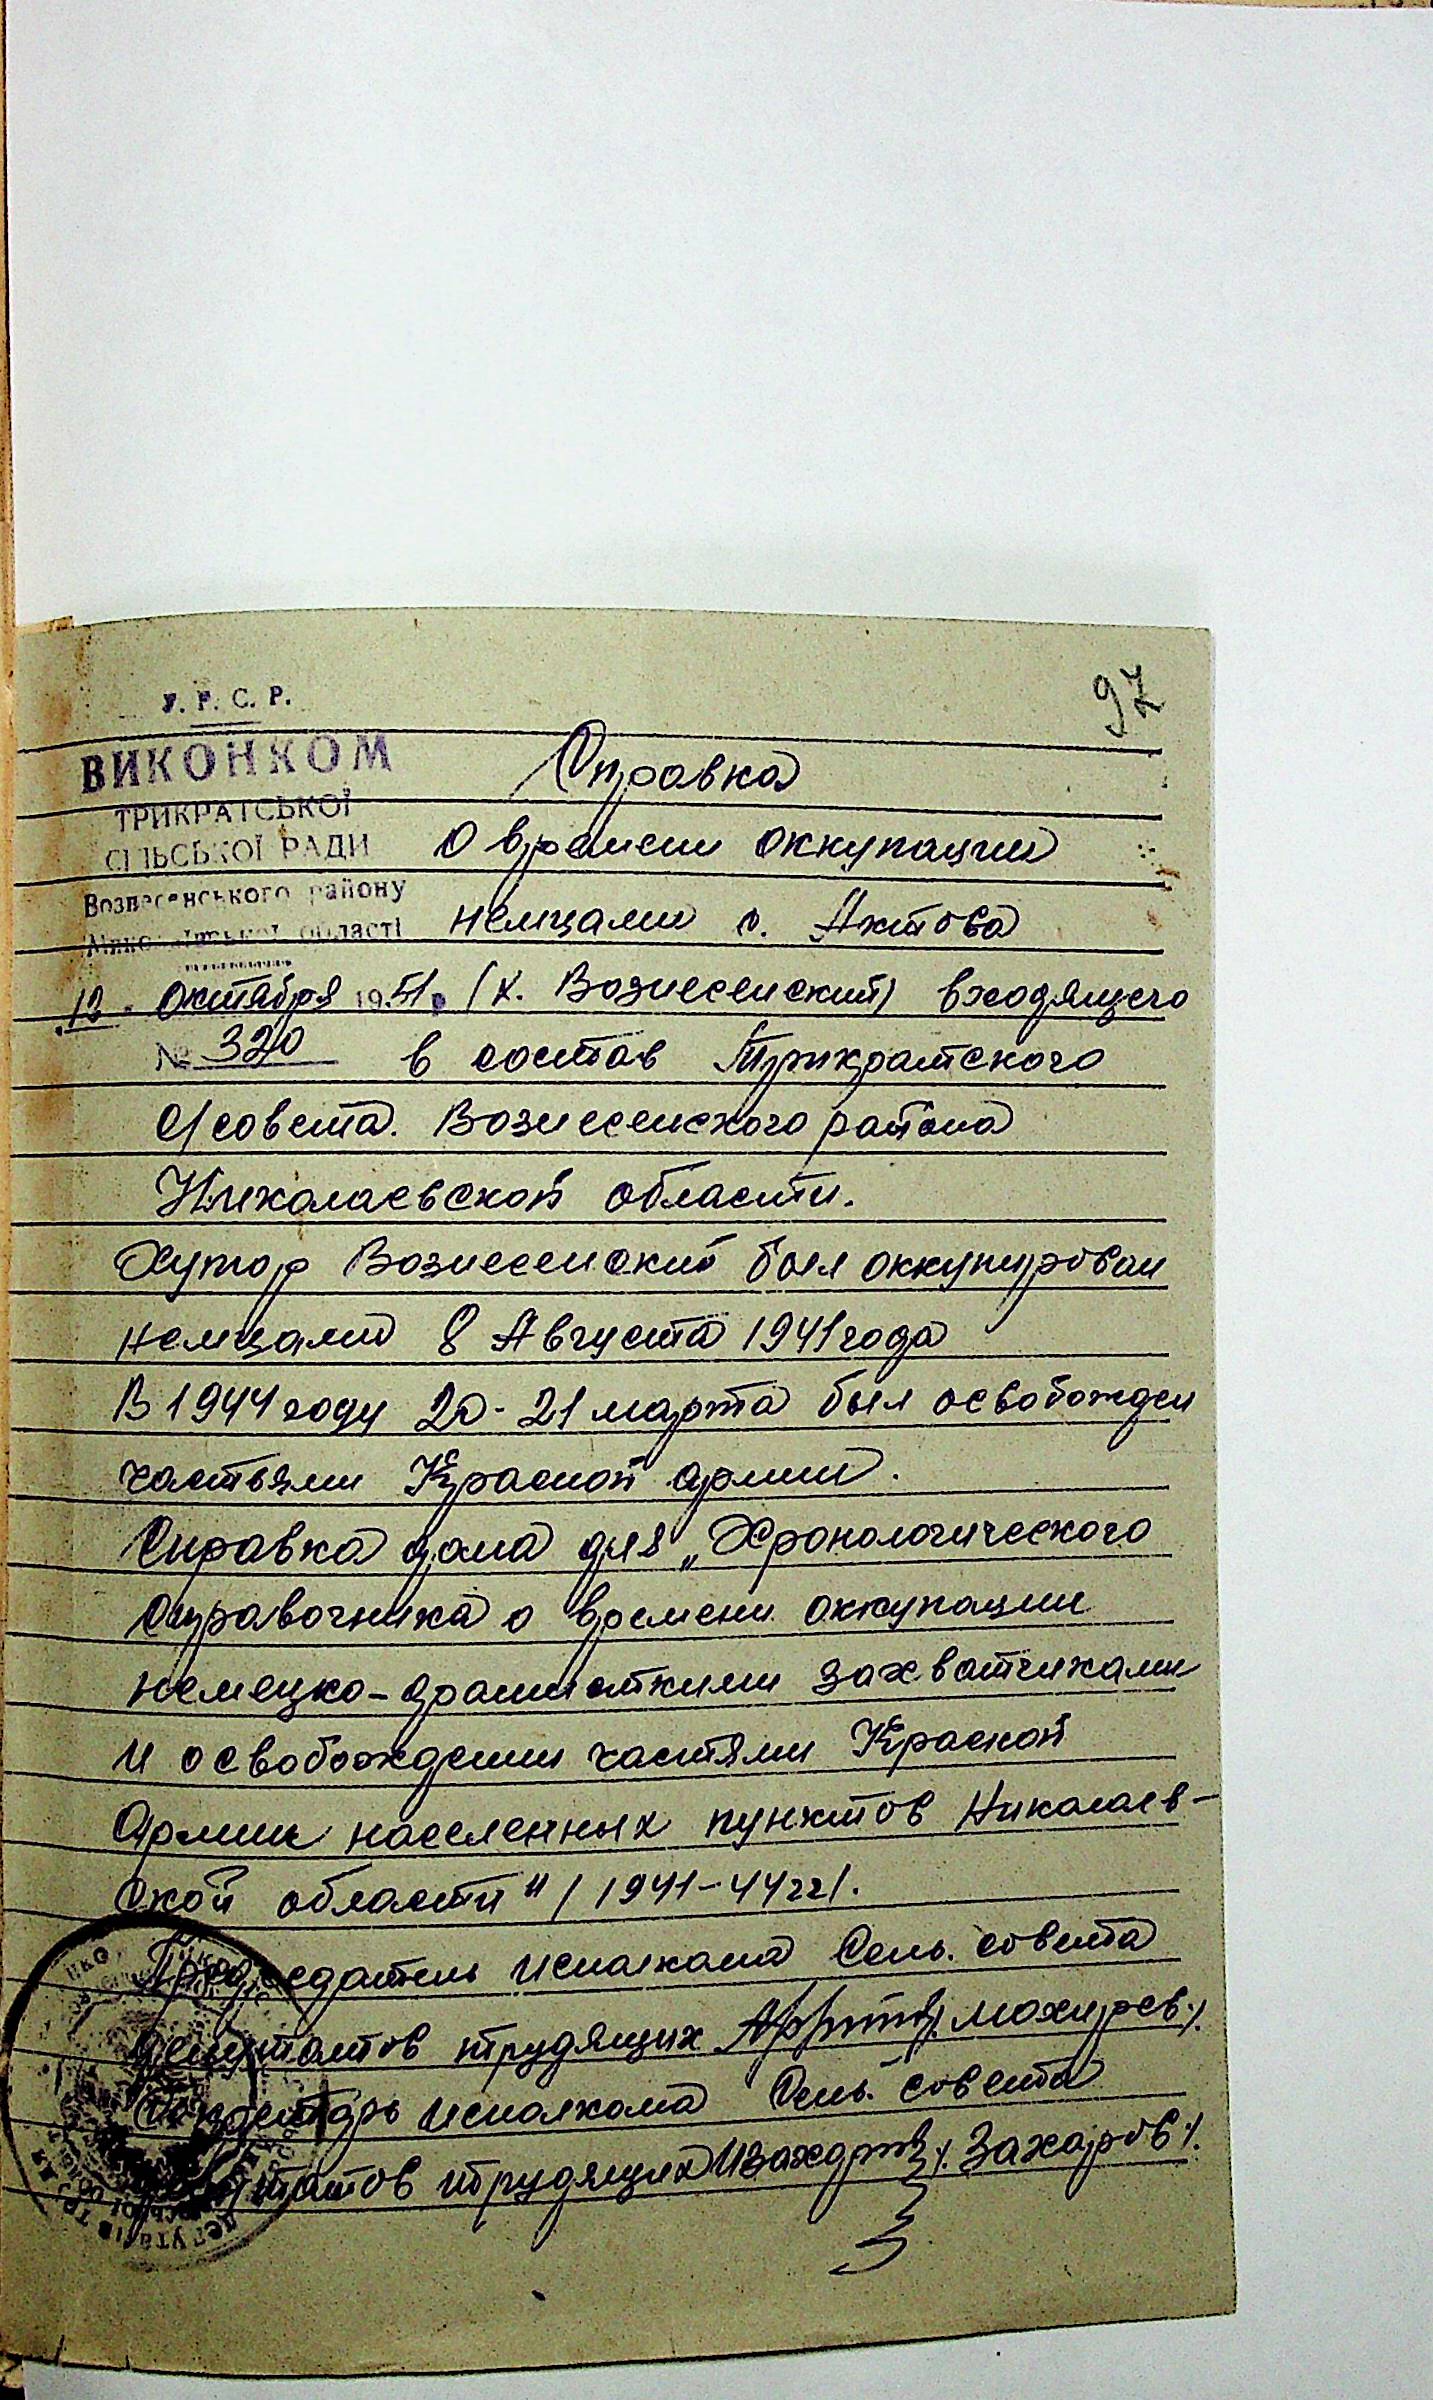 97
У. Р. С. Р.
ВИКОНКОМ
ТРИКРАТСЬКОЇ
СІЛЬСЬКОЇ РАДИ
Вознесенського району
Миколаївської області
12 октября 1951.
№ 320
Справка
о времени оккупации
немцами с. Актова
(х. Вознесенский) входящего
в состав Трикратского
с/совета. Вознесенского района
Николаевской области.
Хутор Вознесенский был оккупирован
немцами 8 Августа 1941 года
В 1944 году 20-21 марта был освобожден
частьями Красной армии.
Справка дана для „Хронологического
справочника о времени оккупации
немецко-фашисткими захватчиками
и освобождении частями Красной
Армии населенных пунктов Николаев-
ской области" /1941-44гг/.
Председатель исполкома Сель. совета
депутатов трудящихся /Мохирев/.
Секретарь исполкома Сель. совета
депутатов трудящихся /Захаров/.